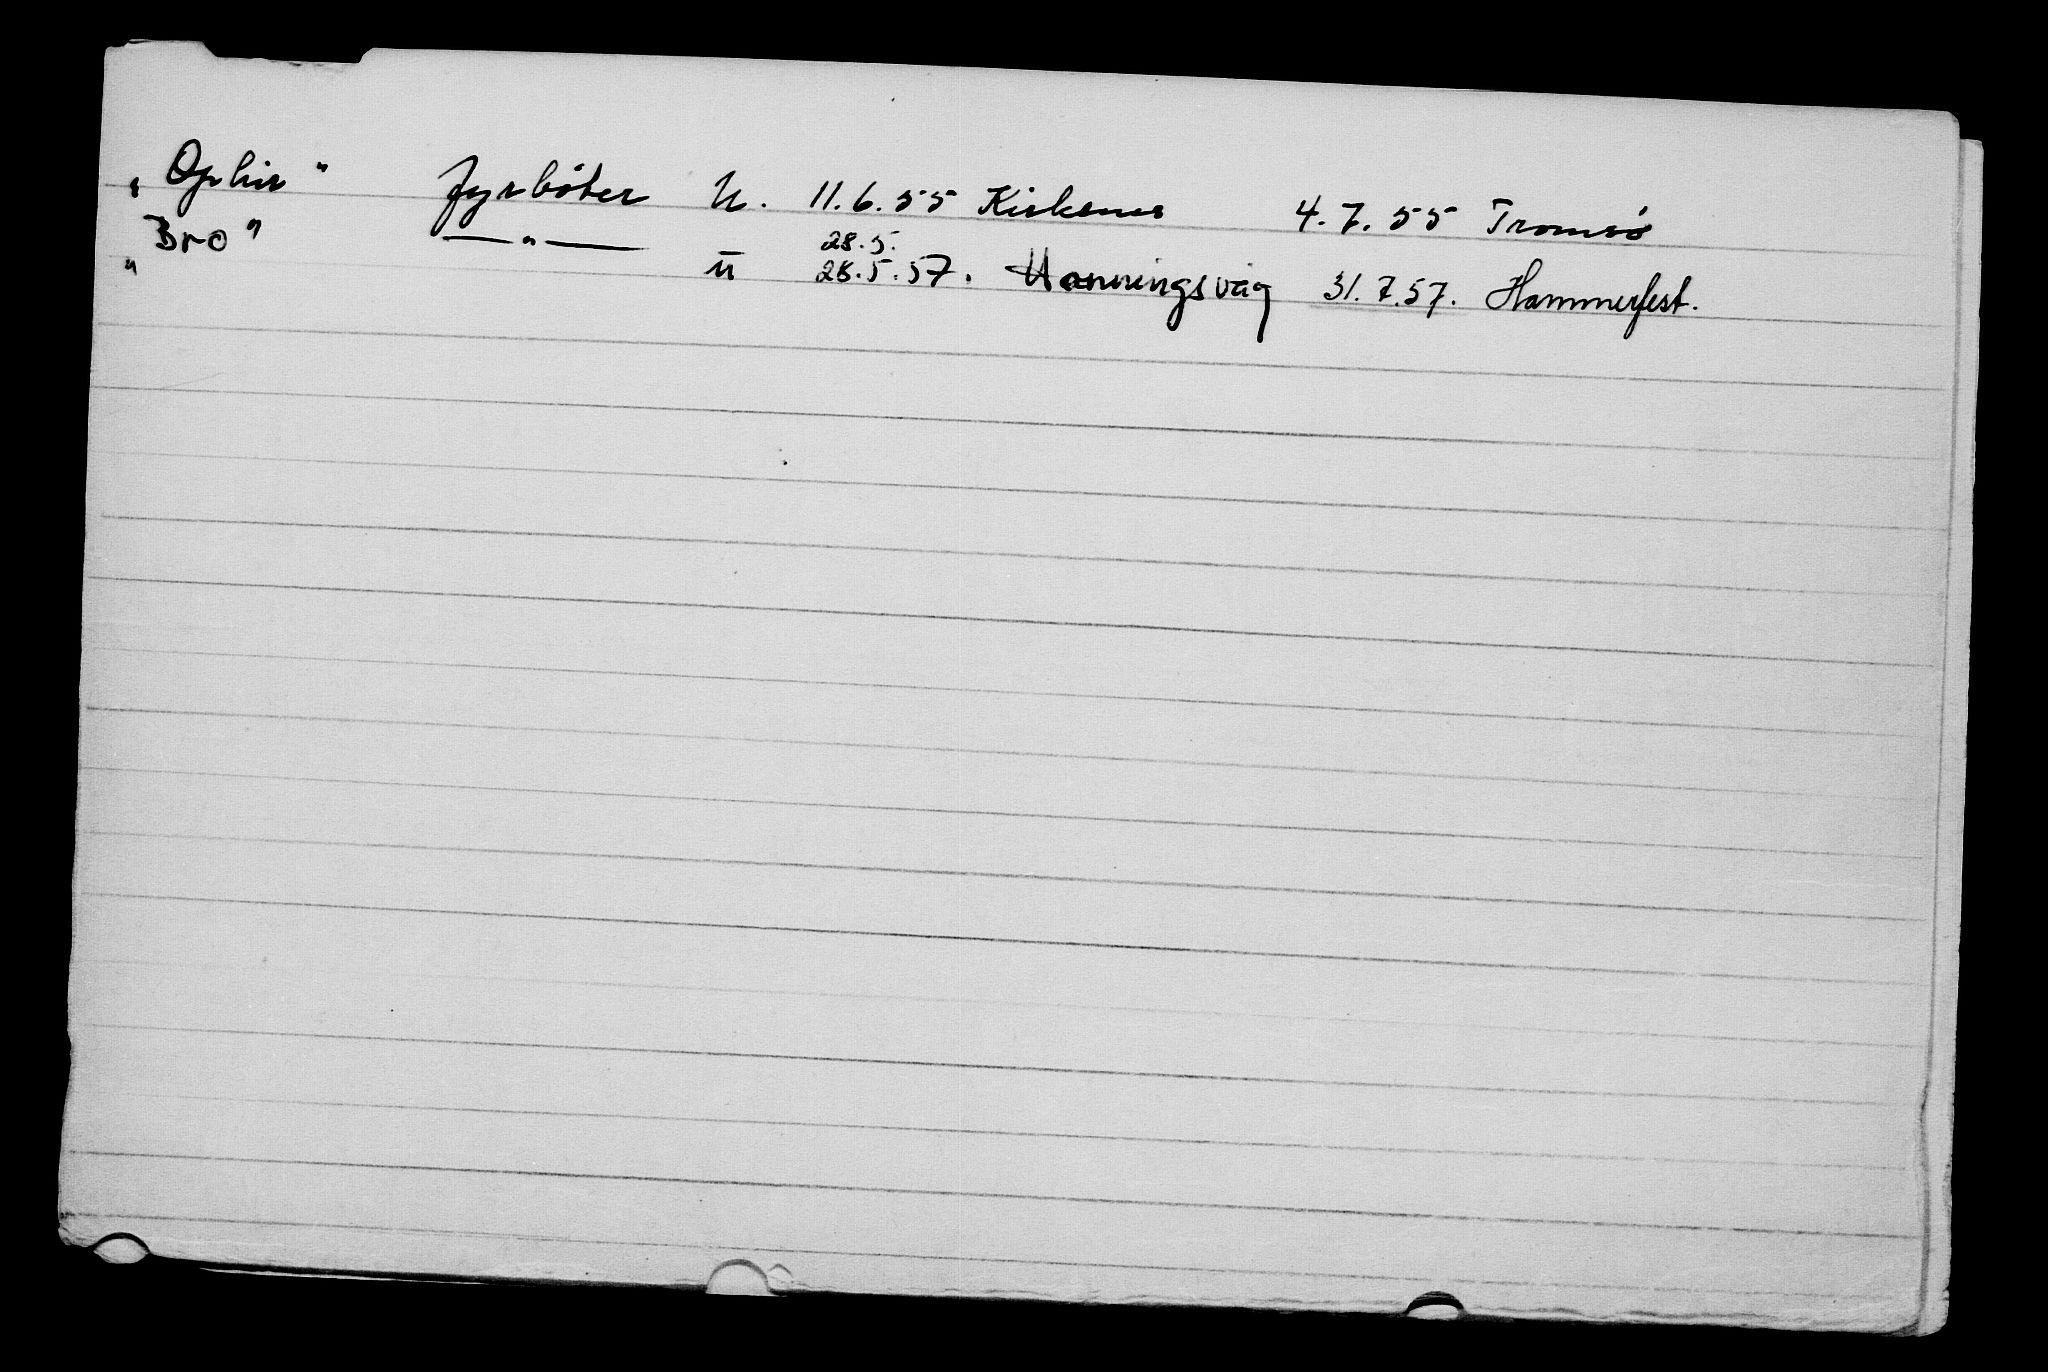 „Ophir" Fyrbøter U. 11.6.55 Kirkenes 4.7.55 Tromsø
„Bro" —"— u 28.5. 28.5.57. Honningsvåg 31.7.57. Hammerfest.